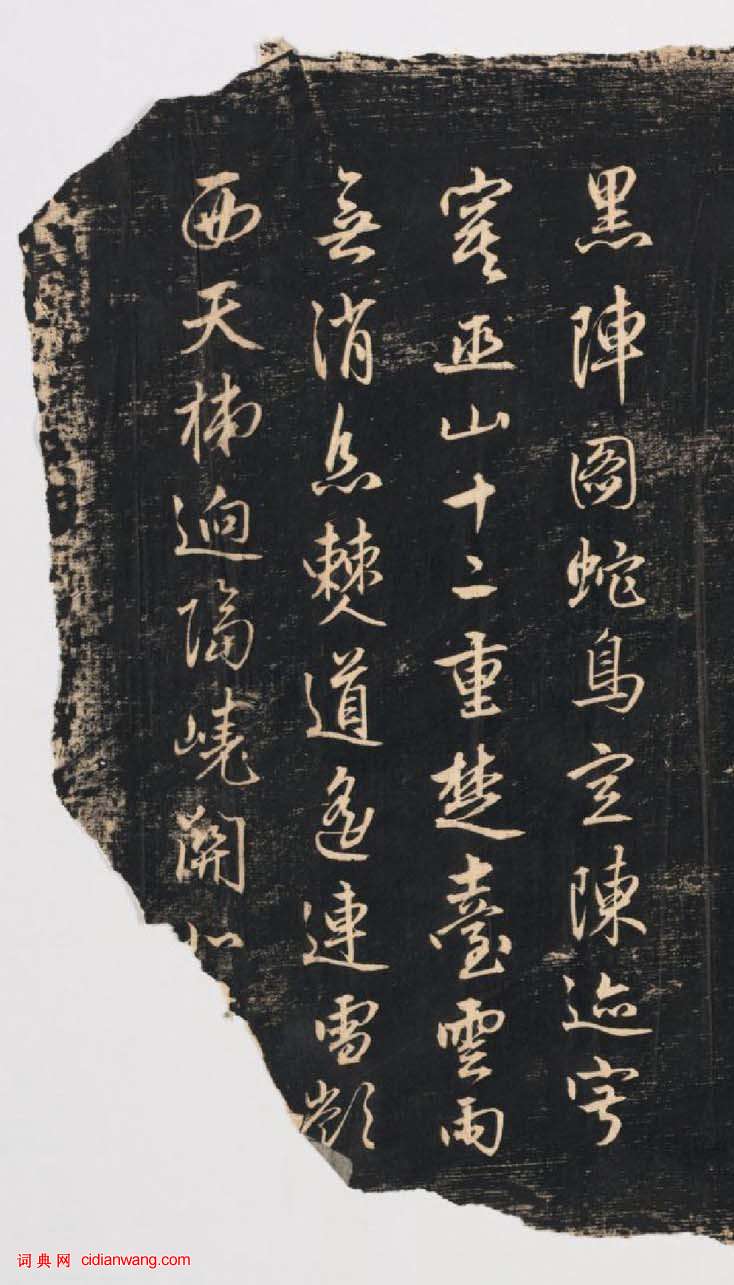 黑陣圖蛇鳥空陳迹寂
寞巫山十二重楚臺雲雨
無消息僰道遙連雪嶺
西天梯迥隔嶢關
词典网 cidianwang.com